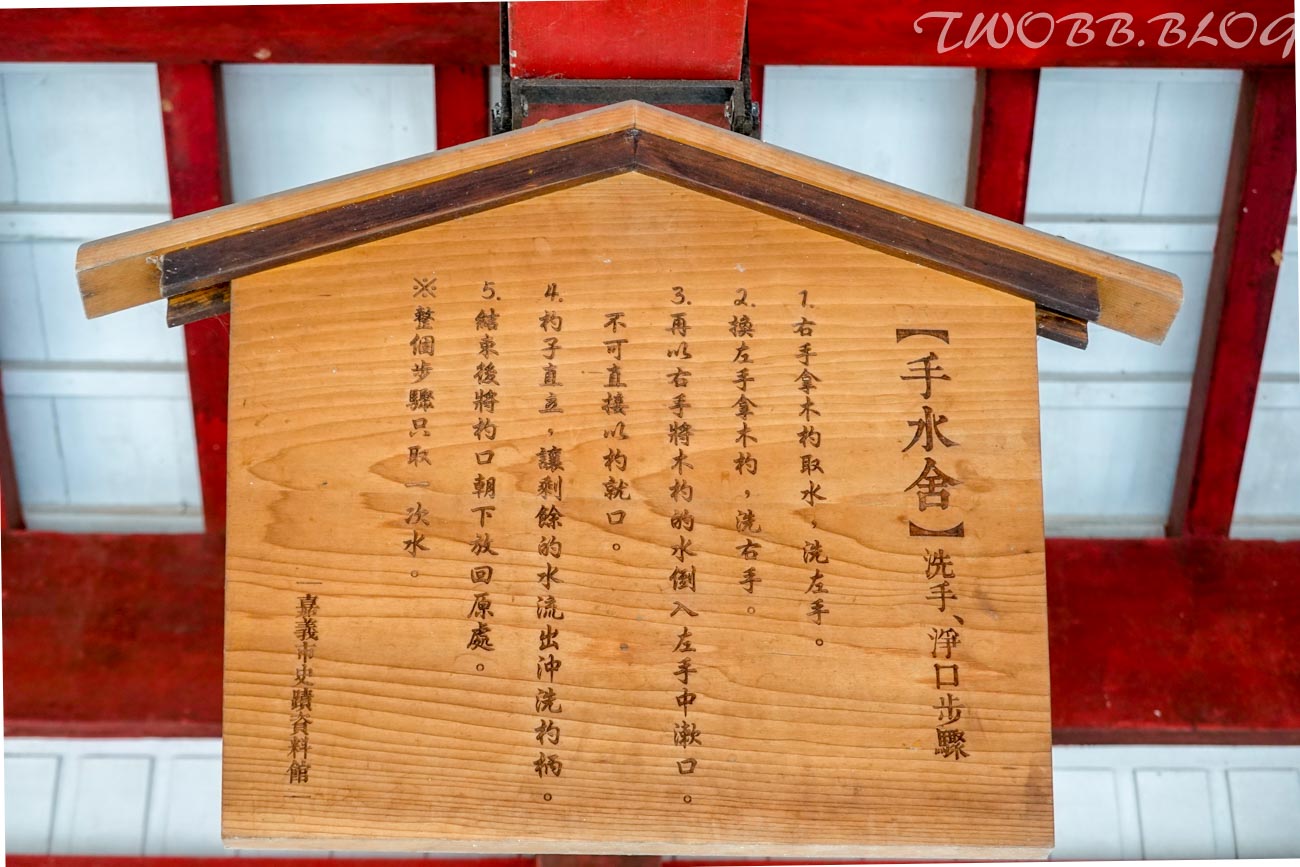 TWOBB.BLOG
【手水舍】洗手、淨口步驟
1.右手拿木杓取水，洗左手。
2.換左手拿木杓，洗右手。
3.再以右手將木杓的水倒入左手中漱口。
不可直接以杓就口。
4.杓子直立，讓剩餘的水流出沖洗杓柄。
5.結束後將杓口朝下放回原處。
※整個步驟只取一次水。
—嘉義市史蹟資料館—